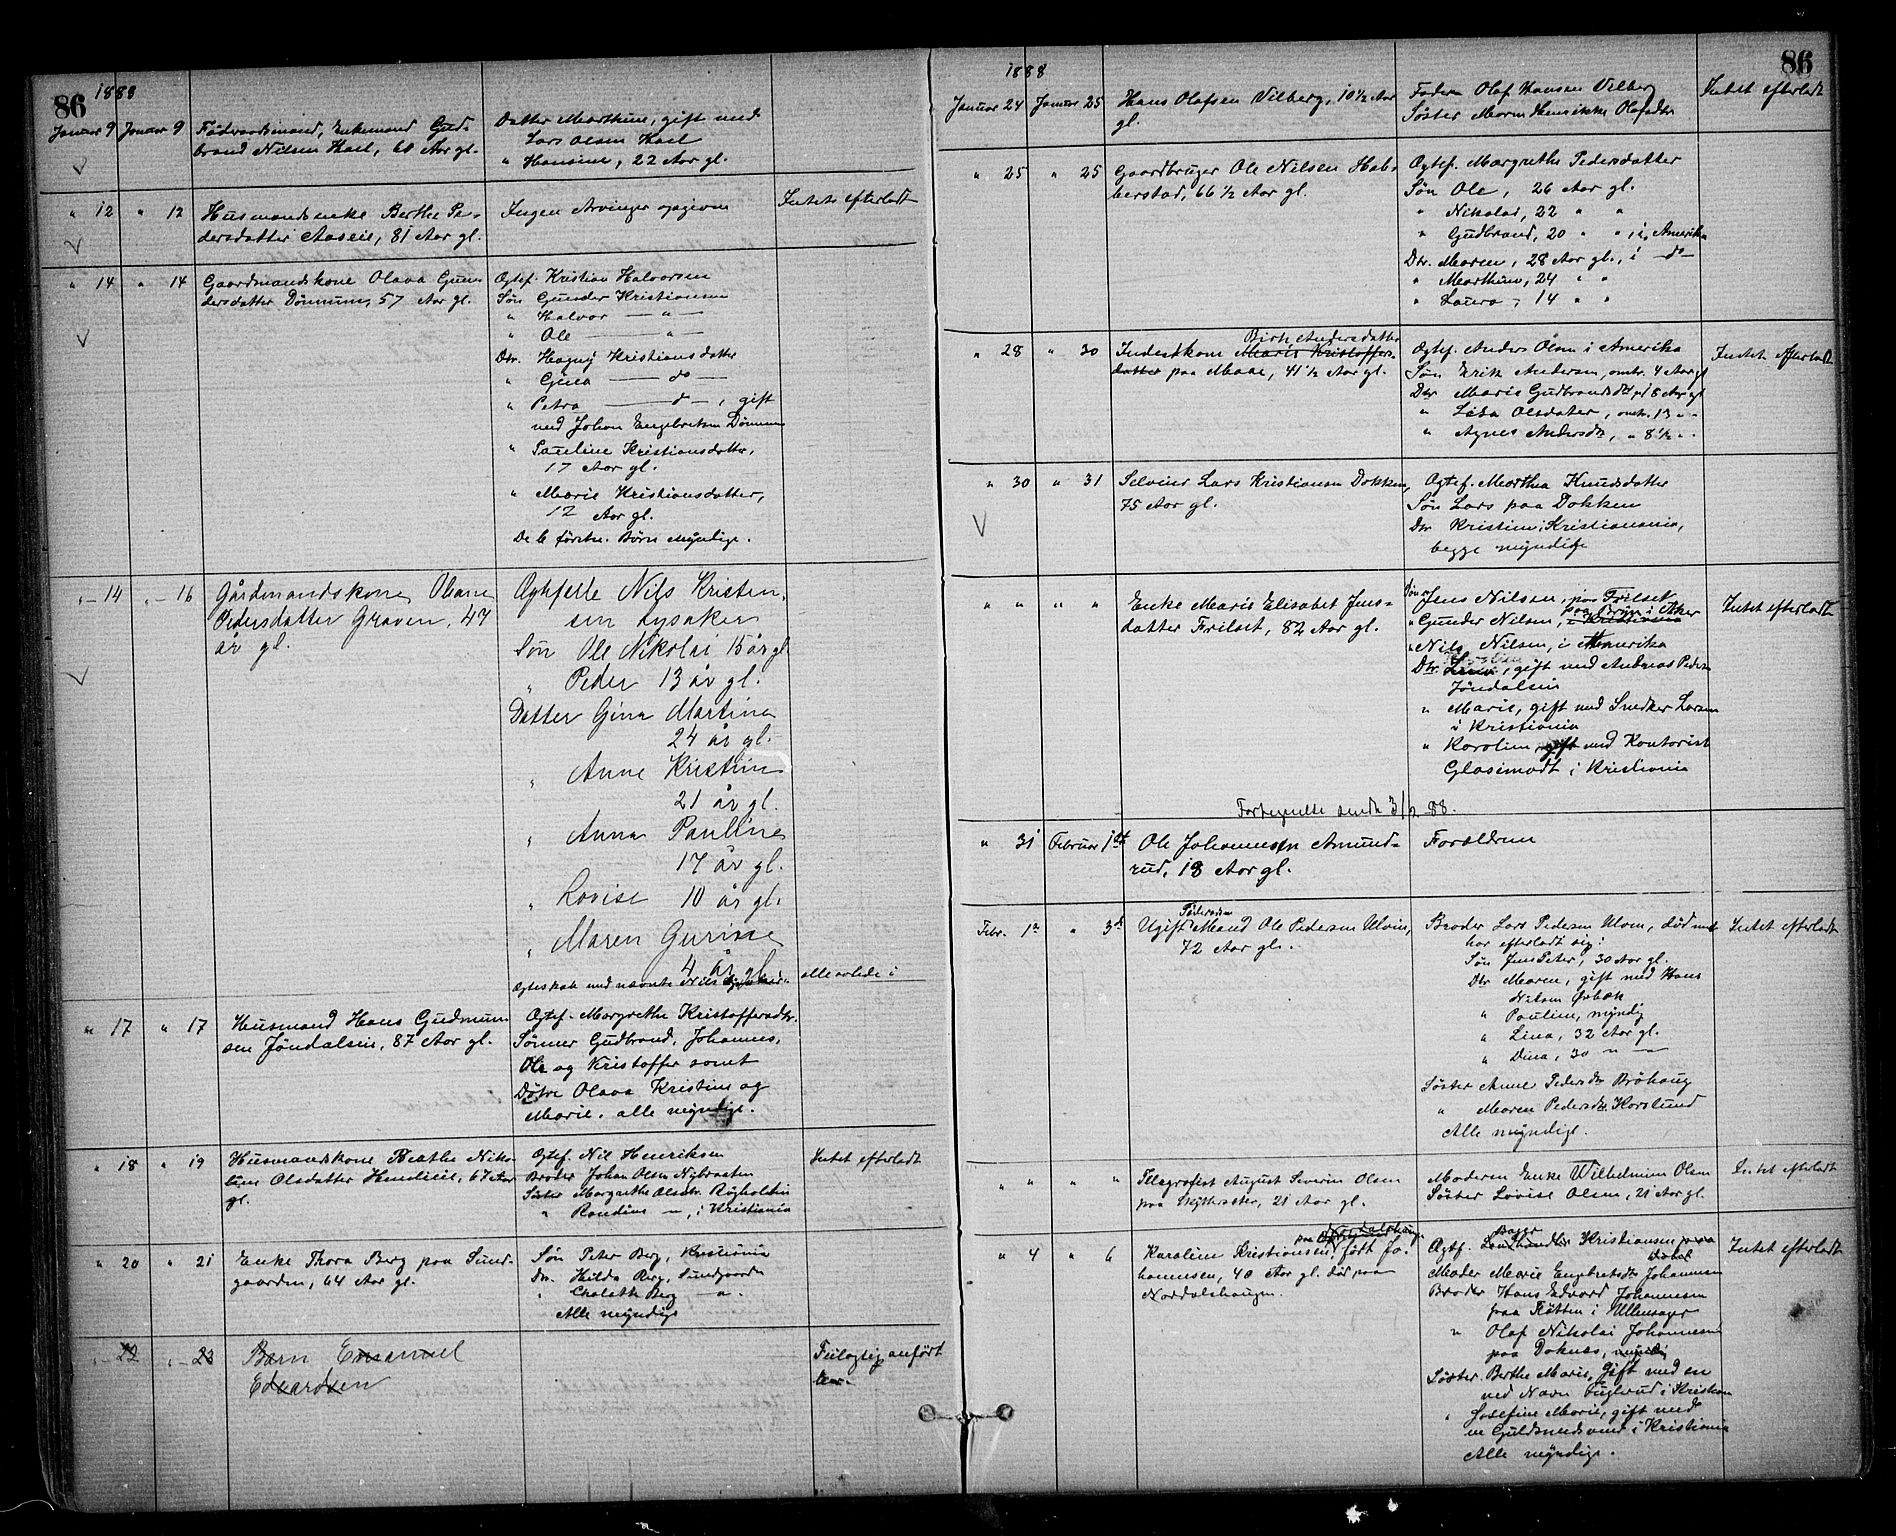 86 1888
Januar 9 Januar 9 Føderaadsmand, Enkemand Gud-
brand Nilsen Kael, 68 Aar gl.
Datter Marthine, gift med
Lars Olsen Kael
" Hansine, 22 Aar gl.
" 12 " 12 Husmandsenke Berthe Pe-
dersdatter Aaseie, 81 Aar gl.
Ingen Arvinger opgiven
Intet efterladt
" 14 " 14 Gaardmandskone Olava Gun-
dersdatter Dønnum, 57 Aar gl.
Ægtef. Kristian Halvorsen
Søn Gunder Kristiansen
" Halvor — " —
" Ole — " —
Dtr. Hagny Kristiansdatter
" Gina — do —
" Petra — d —, gift
med Johan Engebretsen Dønnum
" Pauline Kristiansdatter,
17 Aar gl.
" Marie Kristiansdatter,
12 Aar gl.
De 6 første Børn myndige.
" — 14 " — 16 Gårdmandskone Oleane
Pedersdatter Graven, 47
år gl.
Ægtefelle Nils Kristen-
sen Lysaker
Søn Ole Nikolai 15 år gl
" Peder 13 år gl.
Datter Gina Martine
24 år gl.
" Anne Kristine
21 år gl.
" Anna Pauline
17 år gl.
" Lovise 10 år gl.
" Maren Gurine
4 år gl.
alle avlede i
Ægteskab med nævnte Nils
" 17 " 17 Husmand Hans Gudmun-
sen Jøndalseie, 87 Aar gl.
Ægtef. Margrethe Kristoffersdtr.
Sønner Gudbrand, Johannes,
Ole og Kristoffer samt
Døtre Olava Kristine og
Marie. alle myndige.
" 18 " 19 Husmandskone Beathe Niko-
line Olsdatter Hendieie, 67 Aar
gl.
Ægtef. Nil Henriksen
Broder Johan Olsen Nybraaten
Søster Margrethe Olsdtr.
" Randine — " —, i Kristiania
Intet efterladt
" 20 " 21 Enke Thora Berg paa Sund-
gaarden, 64 Aar gl.
Søn Peter Berg, Kristiania
Dtr. Hilda Berg, Sundgaarden
" Berg — " —
Alle myndige
" — 22 " — 23 Barn Emanuel
Edvardsen
Feilagtig anført
her.
1888 86
Januar 24 Januar 25 Hans Olafsen Vilberg, 10 1/2 Aar
gl.
Faderen Olaf Hansen Vilberg
Søster Maren Henrikke Olafsdtr
Intet efterladt
" 25 " 25 Gaardbruger Ole Nilsen Hab-
berstad, 66 1/2 Aar gl.
Ægtef. Margrethe Pedersdatter
Søn Ole, 26 Aar gl.
" Nikolai, 22 " "
" Gudbrand, 20 " ", i Amerika
Dtr. Maren, 28 Aar gl., i — d —
" Marthine, 24 " "
" Laura, 14 " "
" 28 " 30 Birthe Andersdatter
Inderstkone Marie Kristoffers-
datter paa Moae, 41 1/2 Aar gl.
Ægtef. Anders Olsen i Amerika
Søn Erik Andersen, omtr. 4 Aar gl
Dtr Marie Gudbrandsdtr, 18 Aar gl
" Lisa Olsdatter, omtr. 13 " "
" Agnes Andersdtr, " 8 1/2 " "
Intet efterladt
" 30 " 31 Selveier Lars Kristiansen Dokken,
75 Aar gl.
Ægtef. Marthea Knudsdatter
Søn Lars paa Dokken
Dtr Kristine i Kristianania,
begge myndige
" " " " Enke Marie Elisabet Jens-
datter Frilset, 82 Aar gl.
Søn Jens Nilsen, paa Frilset
paa Bryn i Aker
" Gunder Nilsen, i Kristiania
" Nils Nilsen, i Amerika
Dtr. gift med Andreas Peders
Jøndalseie
" Marie, gift med Snedker Larsen
i Kristiania
" Karoline, gift med Kontorist
Glosimodt i Kristiania
Intet efterladt
Fortegnelse sendt 3/2 88.
" 31 Februar 1st Ole Johannesen Amund-
rud, 18 Aar gl.
Forældrene
Febr. 1ste " 3die Føderaads
Ugift Mand Ole Pedersen Ulvin,
72 Aar gl.
Broder Lars Pedersen Ulven, død men
har efterladt sig:
Søn Jens Peter, 30 Aar gl.
Dtr Maren, gift med Hans
Nilsen Ørbæk
" Pauline, myndig
" Lina, 32 Aar gl.
" Dina, 30 " —
Søster Anne Pedersdtr Bråhaug
" Maren Pedersdtr. Korslund
Alle myndige.
Intet efterladt
" " " " Telegrafist August Severin Olsen
paa 21 Aar gl.
Moderen Enke Wilhelmine Olsen
Søster Lovise Olsen, 21 Aar gl.
Intet efterladt
" 4 " 6 paa Nordalshaugen
Karoline Kristiansen, født Jo-
hannesen, 40 Aar gl. død paa
Nordalshaugen.
Bager
Ægtf. Landhandler Kristiansen paa
Moder Marie Engebretsdtr Johannesen
Broder Hans Edvard Johannesen
paa Røtten i Ullensager
" Olaf Nikolai Johannesen
paa Doknæs, myndig
Søster. Berthe Marie, Gift med en
ved Navn Fuglerud i Kristiania
" Josefine Marie, gift med
en Guldsmedsvend i Kristiania
Alle myndige.
Intet efterladt